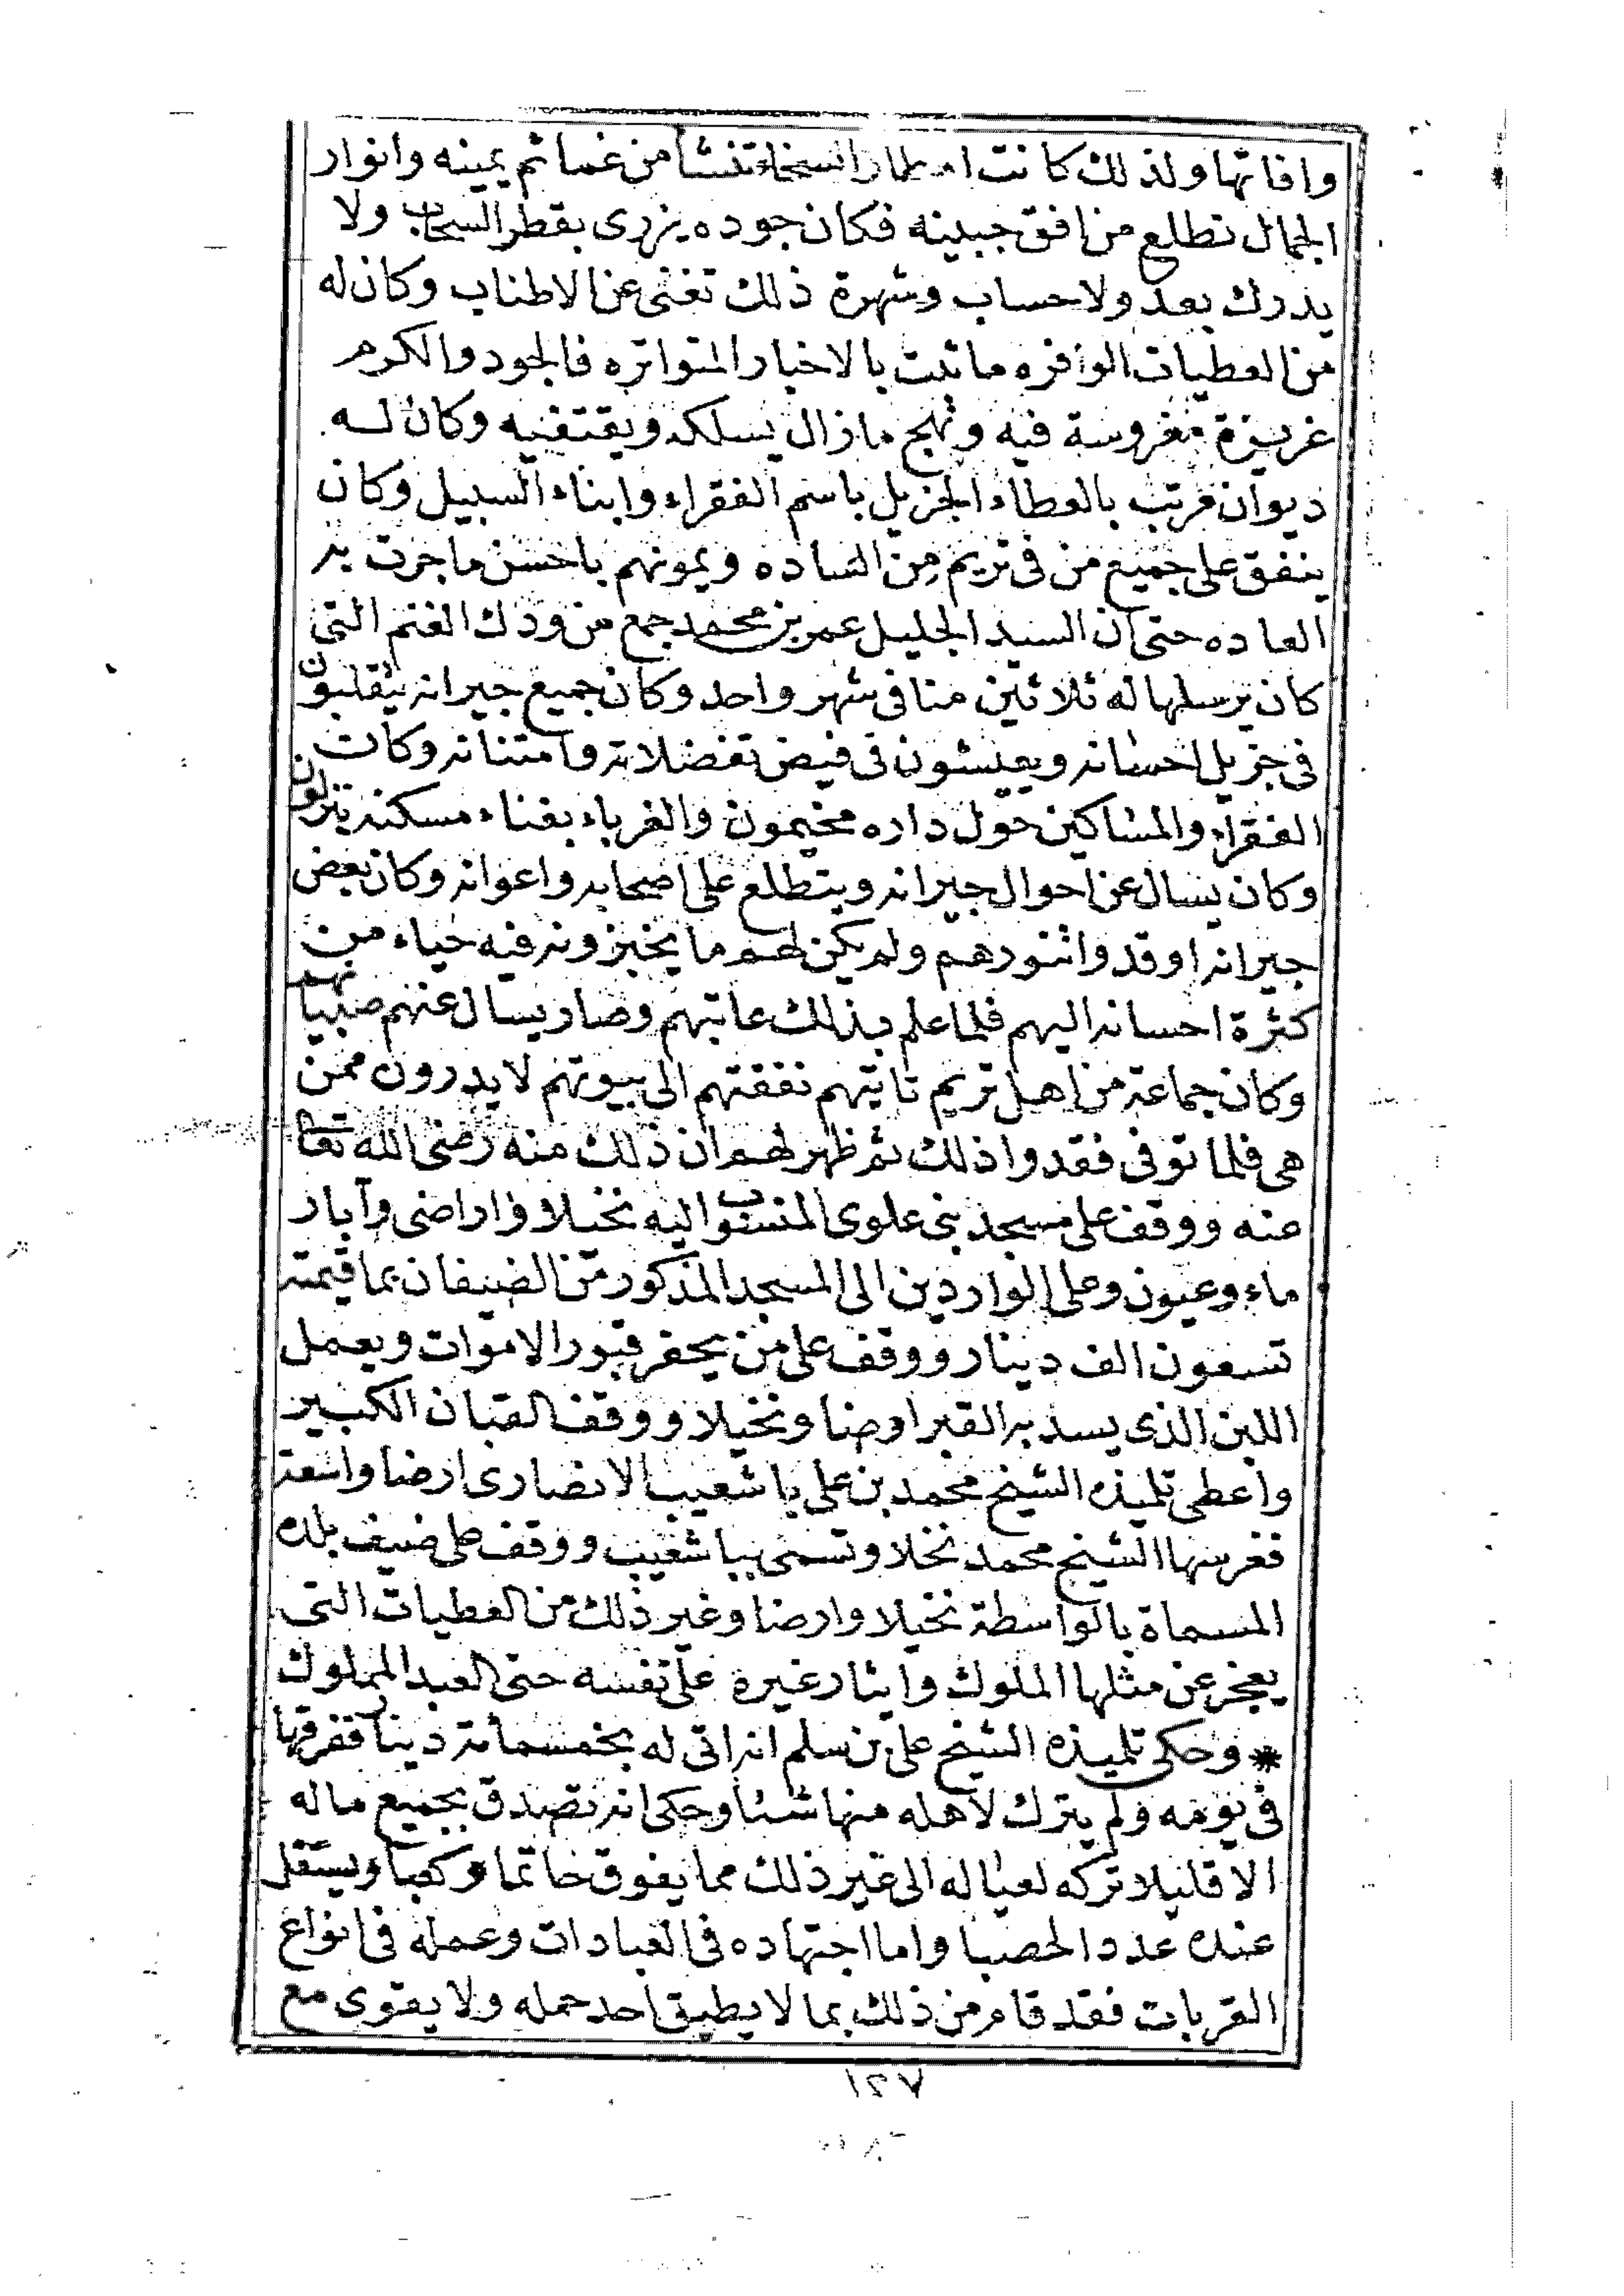 وافاتها ولذلك كانت امطار السخاء تنشأ من غمائم يمينه وانوار
الجمال تطلع من افق جبينه فكان جوده يزرى بقطر السحاب ولا
يدرك بعد ولا حساب وشهرة ذلك تغنى عن الاطناب وكان له
من العطيات الوافره ما ثبت بالاخبار المتواتره فالجود والكرم
غريزة مغروسة فيه ونهج ما زال يسلكه ويقتفيه وكان له
ديوان مرتب بالعطاء الجزيل باسم الفقراء وابناء السبيل وكان
ينفق على جميع من فى تريم من الساده ويمونهم باحسن ما جرت به
العاده حتى ان السيد الجليل عمر بن محمد جمع من ودك الغنم التى
كان يرسلها له ثلاثين منا فى شهر واحد وكان جميع جيرانه يتقلبون
فى جزيل احسانه ويعيشون فى فيض تفضلاته وامتنانه وكانت
الفقراء والمساكين حول داره مخيمون والغرباء بفناء مسكنه ينزلون
وكان يسال عن احوال جيرانه ويتطلع على اصحابه واعوانه وكان بعض
جيرانه اوقدوا تنورهم ولم يكن لهم ما يخبزونه فيه حياء من
كثرة احسانه اليهم فلما علم بذلك عاتبهم وصار يسال عنهم صبيانهم
وكان جماعة من اهل تريم تاتيهم نفقتهم الى بيوتهم لا يدرون ممن
هى فلما توفى فقدوا ذلك ثم ظهر لهم ان ذلك منه رضى الله تعا
عنه ووقف على مسجد بنى علوى المنسوب اليه نخيلا واراضى وآبار
ماء وعيون وعلى الواردين الى المسجد المذكور من الضيفان بما قيمته
تسعون الف دينار ووقف على من يحفر قبور الاموات ويعمل
اللبن الذى يسد به القبر ارضا ونخيلا ووقف القبان الكبير
واعطى تلميذه الشيخ محمد بن على باشعيب الانصارى ارضا واسعة
فغرسها الشيخ محمد نخلا وتسمى بباشعيب ووقف على ضيف بلده
المسماة بالواسطة نخيلا وارضا وغير ذلك من العطيات التى
يعجز عن مثلها الملوك وايثار غيره على نفسه حتى العبد المملوك
* وحكى تلميذه الشيخ على بن سلم انه اتى له بخمسمائة دينار ففرقها
فى يومه ولم يترك لاهله منها شيئا وحكى انه تصدق بجميع ماله
الا قليلا تركه لعياله الى غير ذلك مما يفوق حاتما وكعبا ويستقل
عنده عدد الحصبا واما اجتهاده فى العبادات وعمله فى انواع
القربات فقد قام من ذلك بما لا يطيق احد حمله ولا يقوى مع
١٢٧